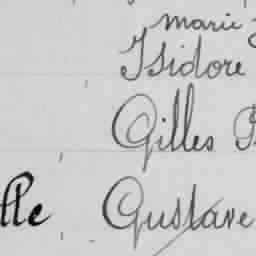 marie
Isidore
Gilles
lle Gustave